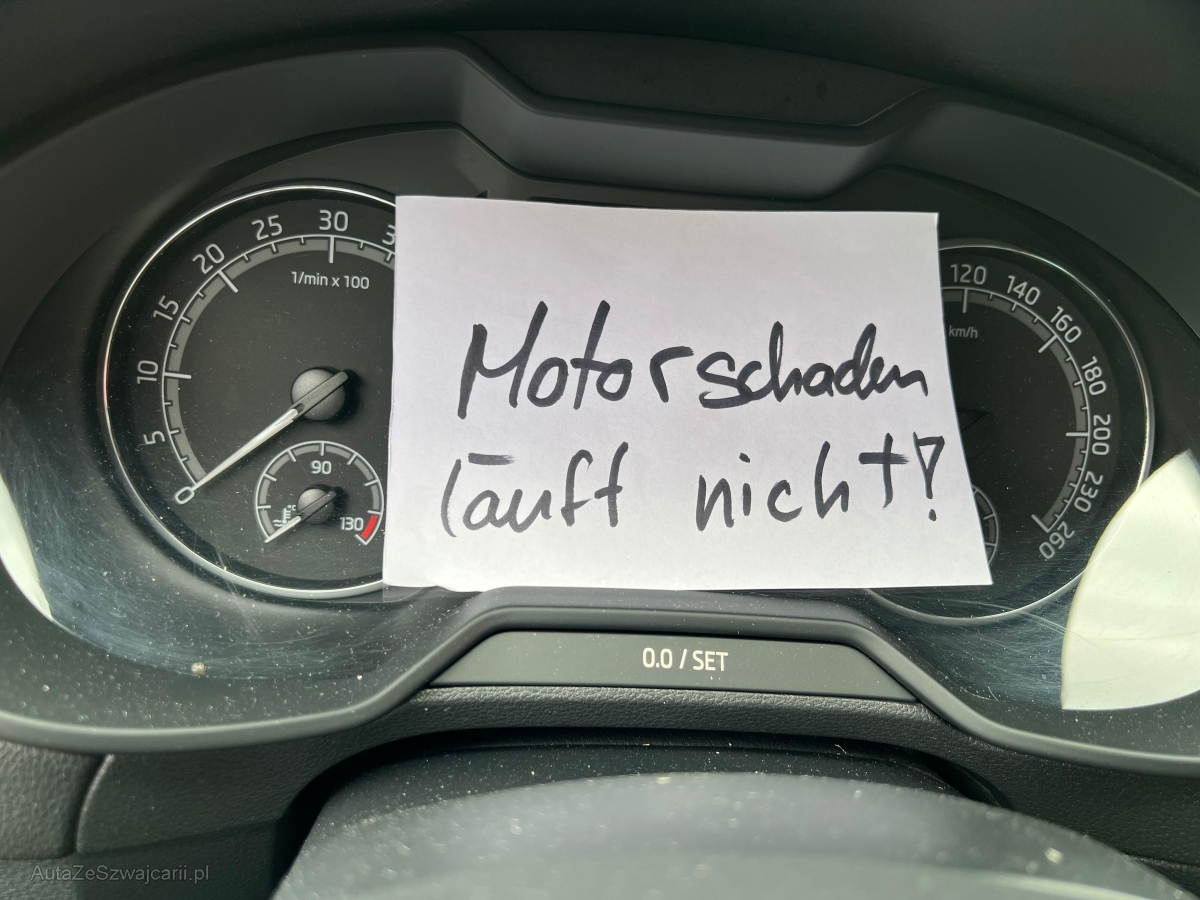 5
10
15
20
25
30
3
1/min x 100
90
130
°C
Motorschaden
läuft nicht!
120
140
160
180
200
230
260
km/h
0.0 / SET
AutaZeSzwajcarii.pl